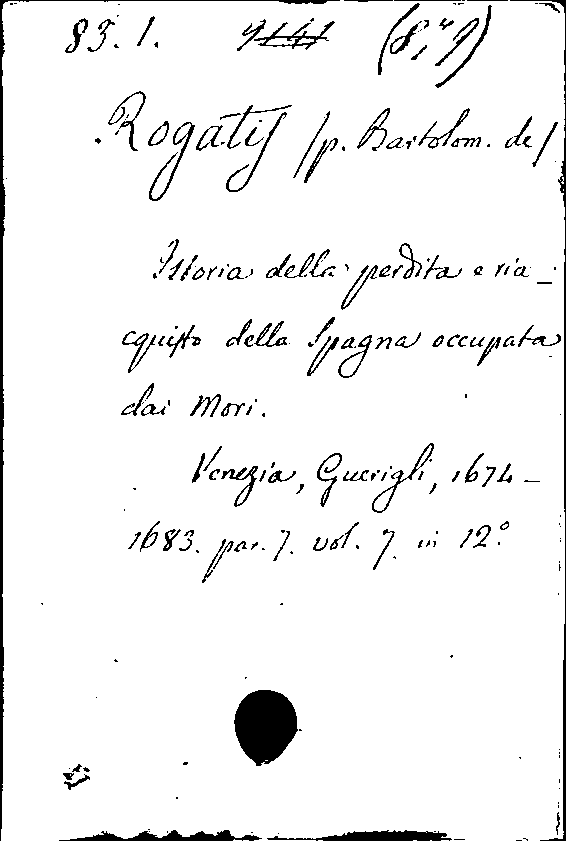 83. 1.
Rogatis /p. Bartolom. de/
Istoria della perdita e ria-
cquisto della Spagna occupata
dai Mori.
Venezia, Guerigli, 1674-
1683. par. 7. vol. 7. in 12.°